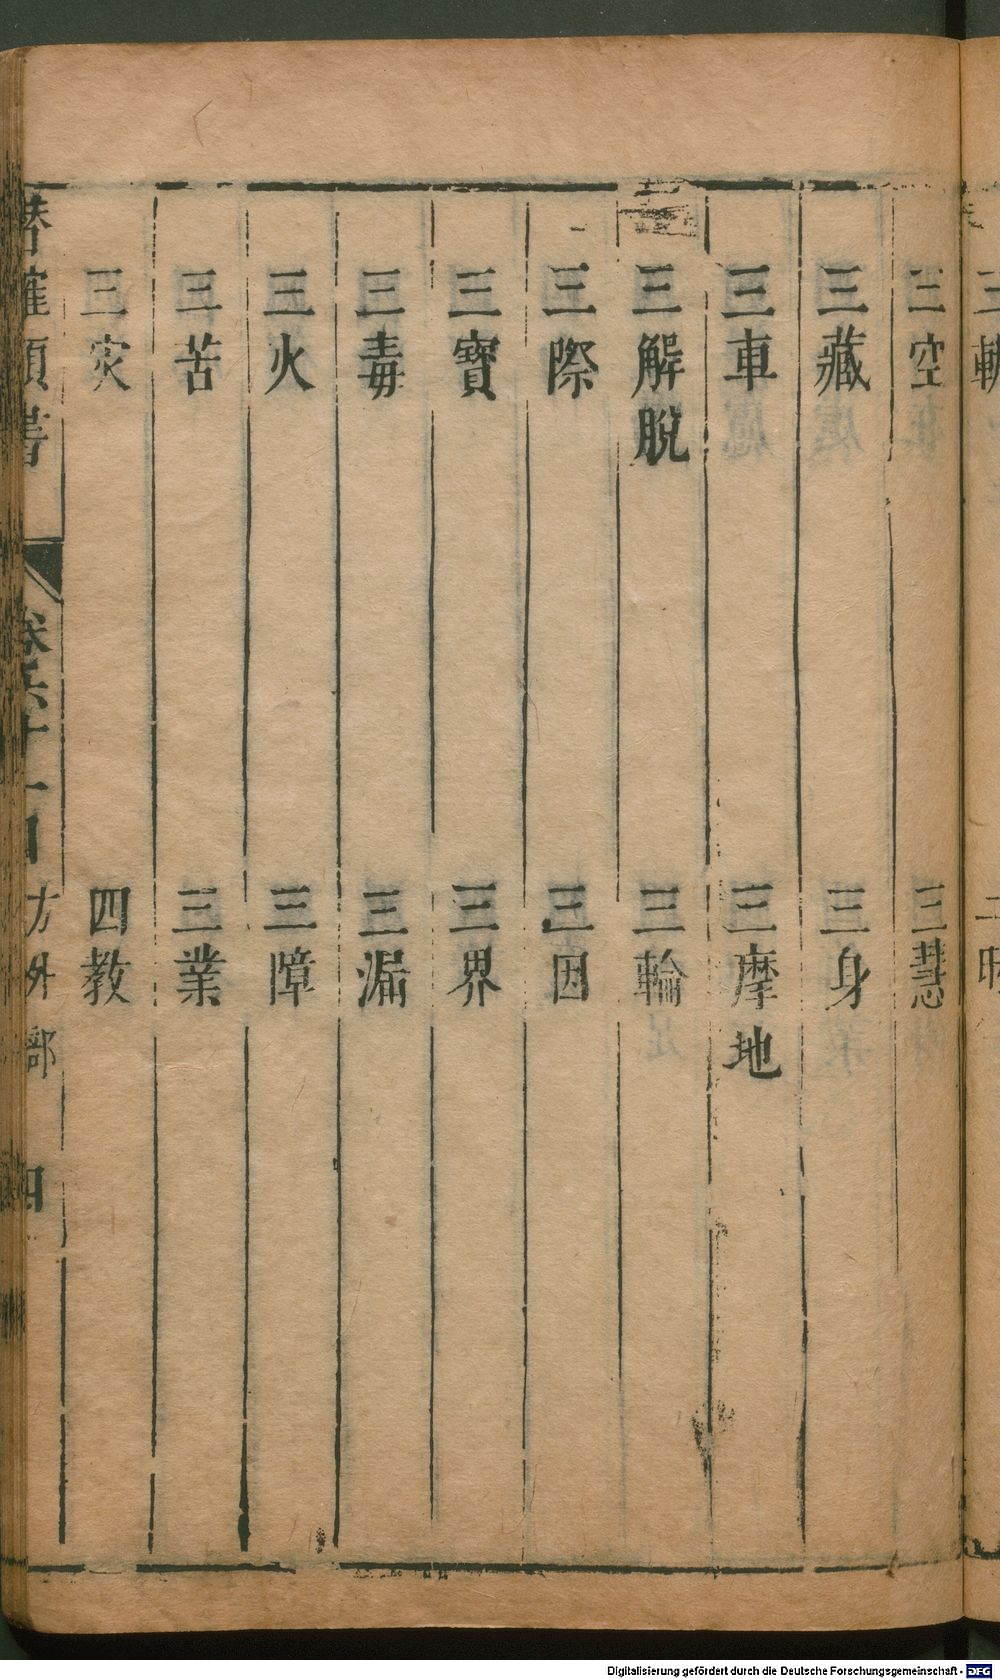 三空　三慧
三藏　三身
三車　三摩地
三解脫　三輪
三際　三因
三寶　三界
三毒　三漏
三火　三障
三苦　三業
三灾　四教
方外部　四
Digitalisierung gefördert durch die Deutsche Forschungsgemeinschaft - DFG